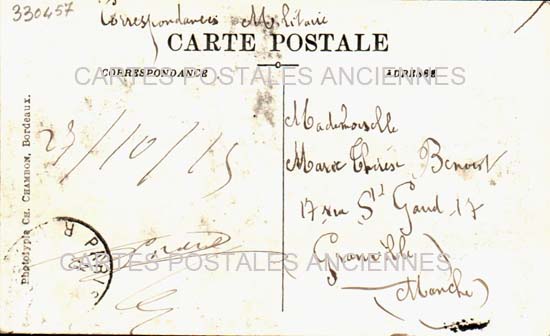 330457
Correspondances Militaire
CARTE POSTALE
CARTES POSTALES ANCIENNES
CORRESPONDANCE
ADRESSE
27/10/15
Mademoiselle
Marie Thérèse Benoist
17 rue St Gaud 17
Granville
(Manche)
CARTES POSTALES ANCIENNES
PARIS
R
Phototypie CH. CHAMBON, Bordeaux.